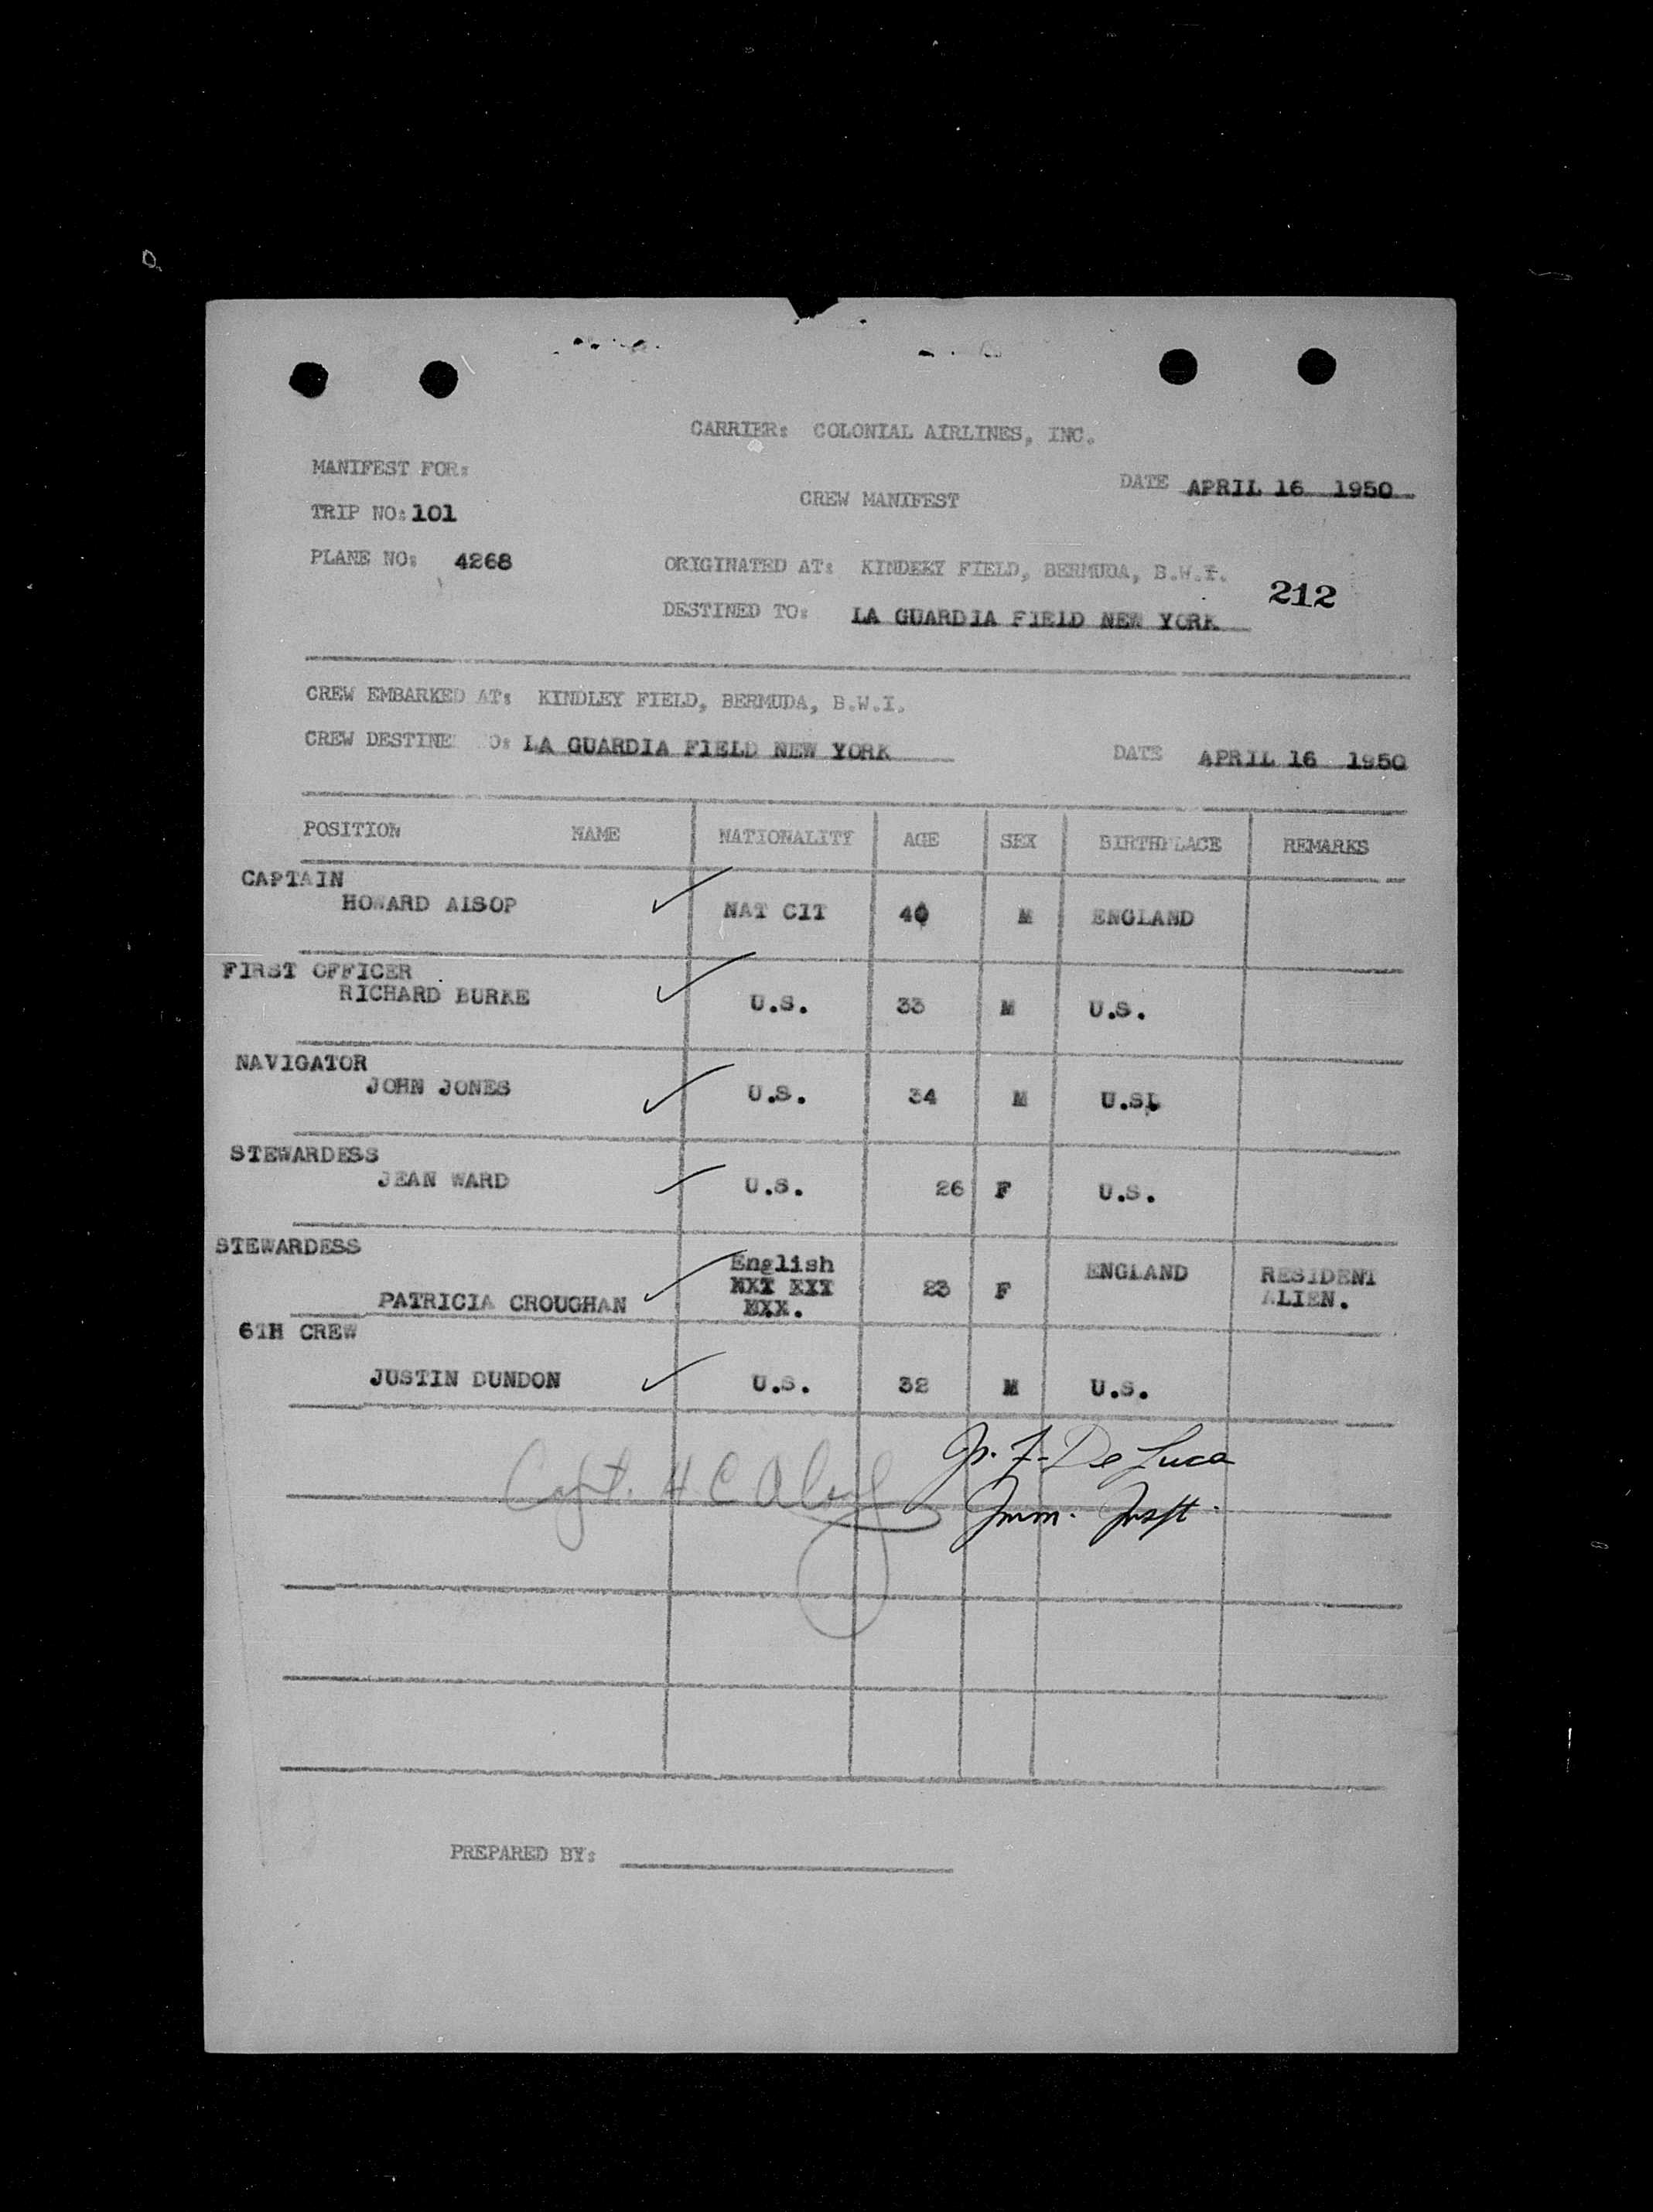 CARRIER: COLONIAL AIRLINES, INC.
MANIFEST FOR:
DATE APRIL 16 1950
CREW MANIFEST
TRIP NO: 101
PLANE NO: 4268
ORIGINATED AT: KINDEKY FIELD, BERMUDA, B.W.I.
212
DESTINED TO: LA GUARDIA FIELD NEW YORK
CREW EMBARKED AT: KINDLEY FIELD, BERMUDA, B.W.I.
CREW DESTINE O: LA GUARDIA FIELD NEW YORK DATE APRIL 16 1950
POSITION NAME NATIONALITY AGE SEX BIRTHPLACE REMARKS
CAPTAIN
HOWARD AlSOP NAT CIT 40 M ENGLAND
FIRST OFFICER
RICHARD BURKE U.S. 33 M U.S.
NAVIGATOR
JOHN JONES U.S. 34 M U.S.
STEWARDESS
JEAN WARD U.S. 26 F U.S.
STEWARDESS
English
PATRICIA CROUGHAN 23 F ENGLAND RESIDENT
ALIEN.
6TH CREW
JUSTIN DUNDON U.S. 32 M U.S.
Capt. H C Alsop
De Luca
Imm. Inspt.
PREPARED BY: